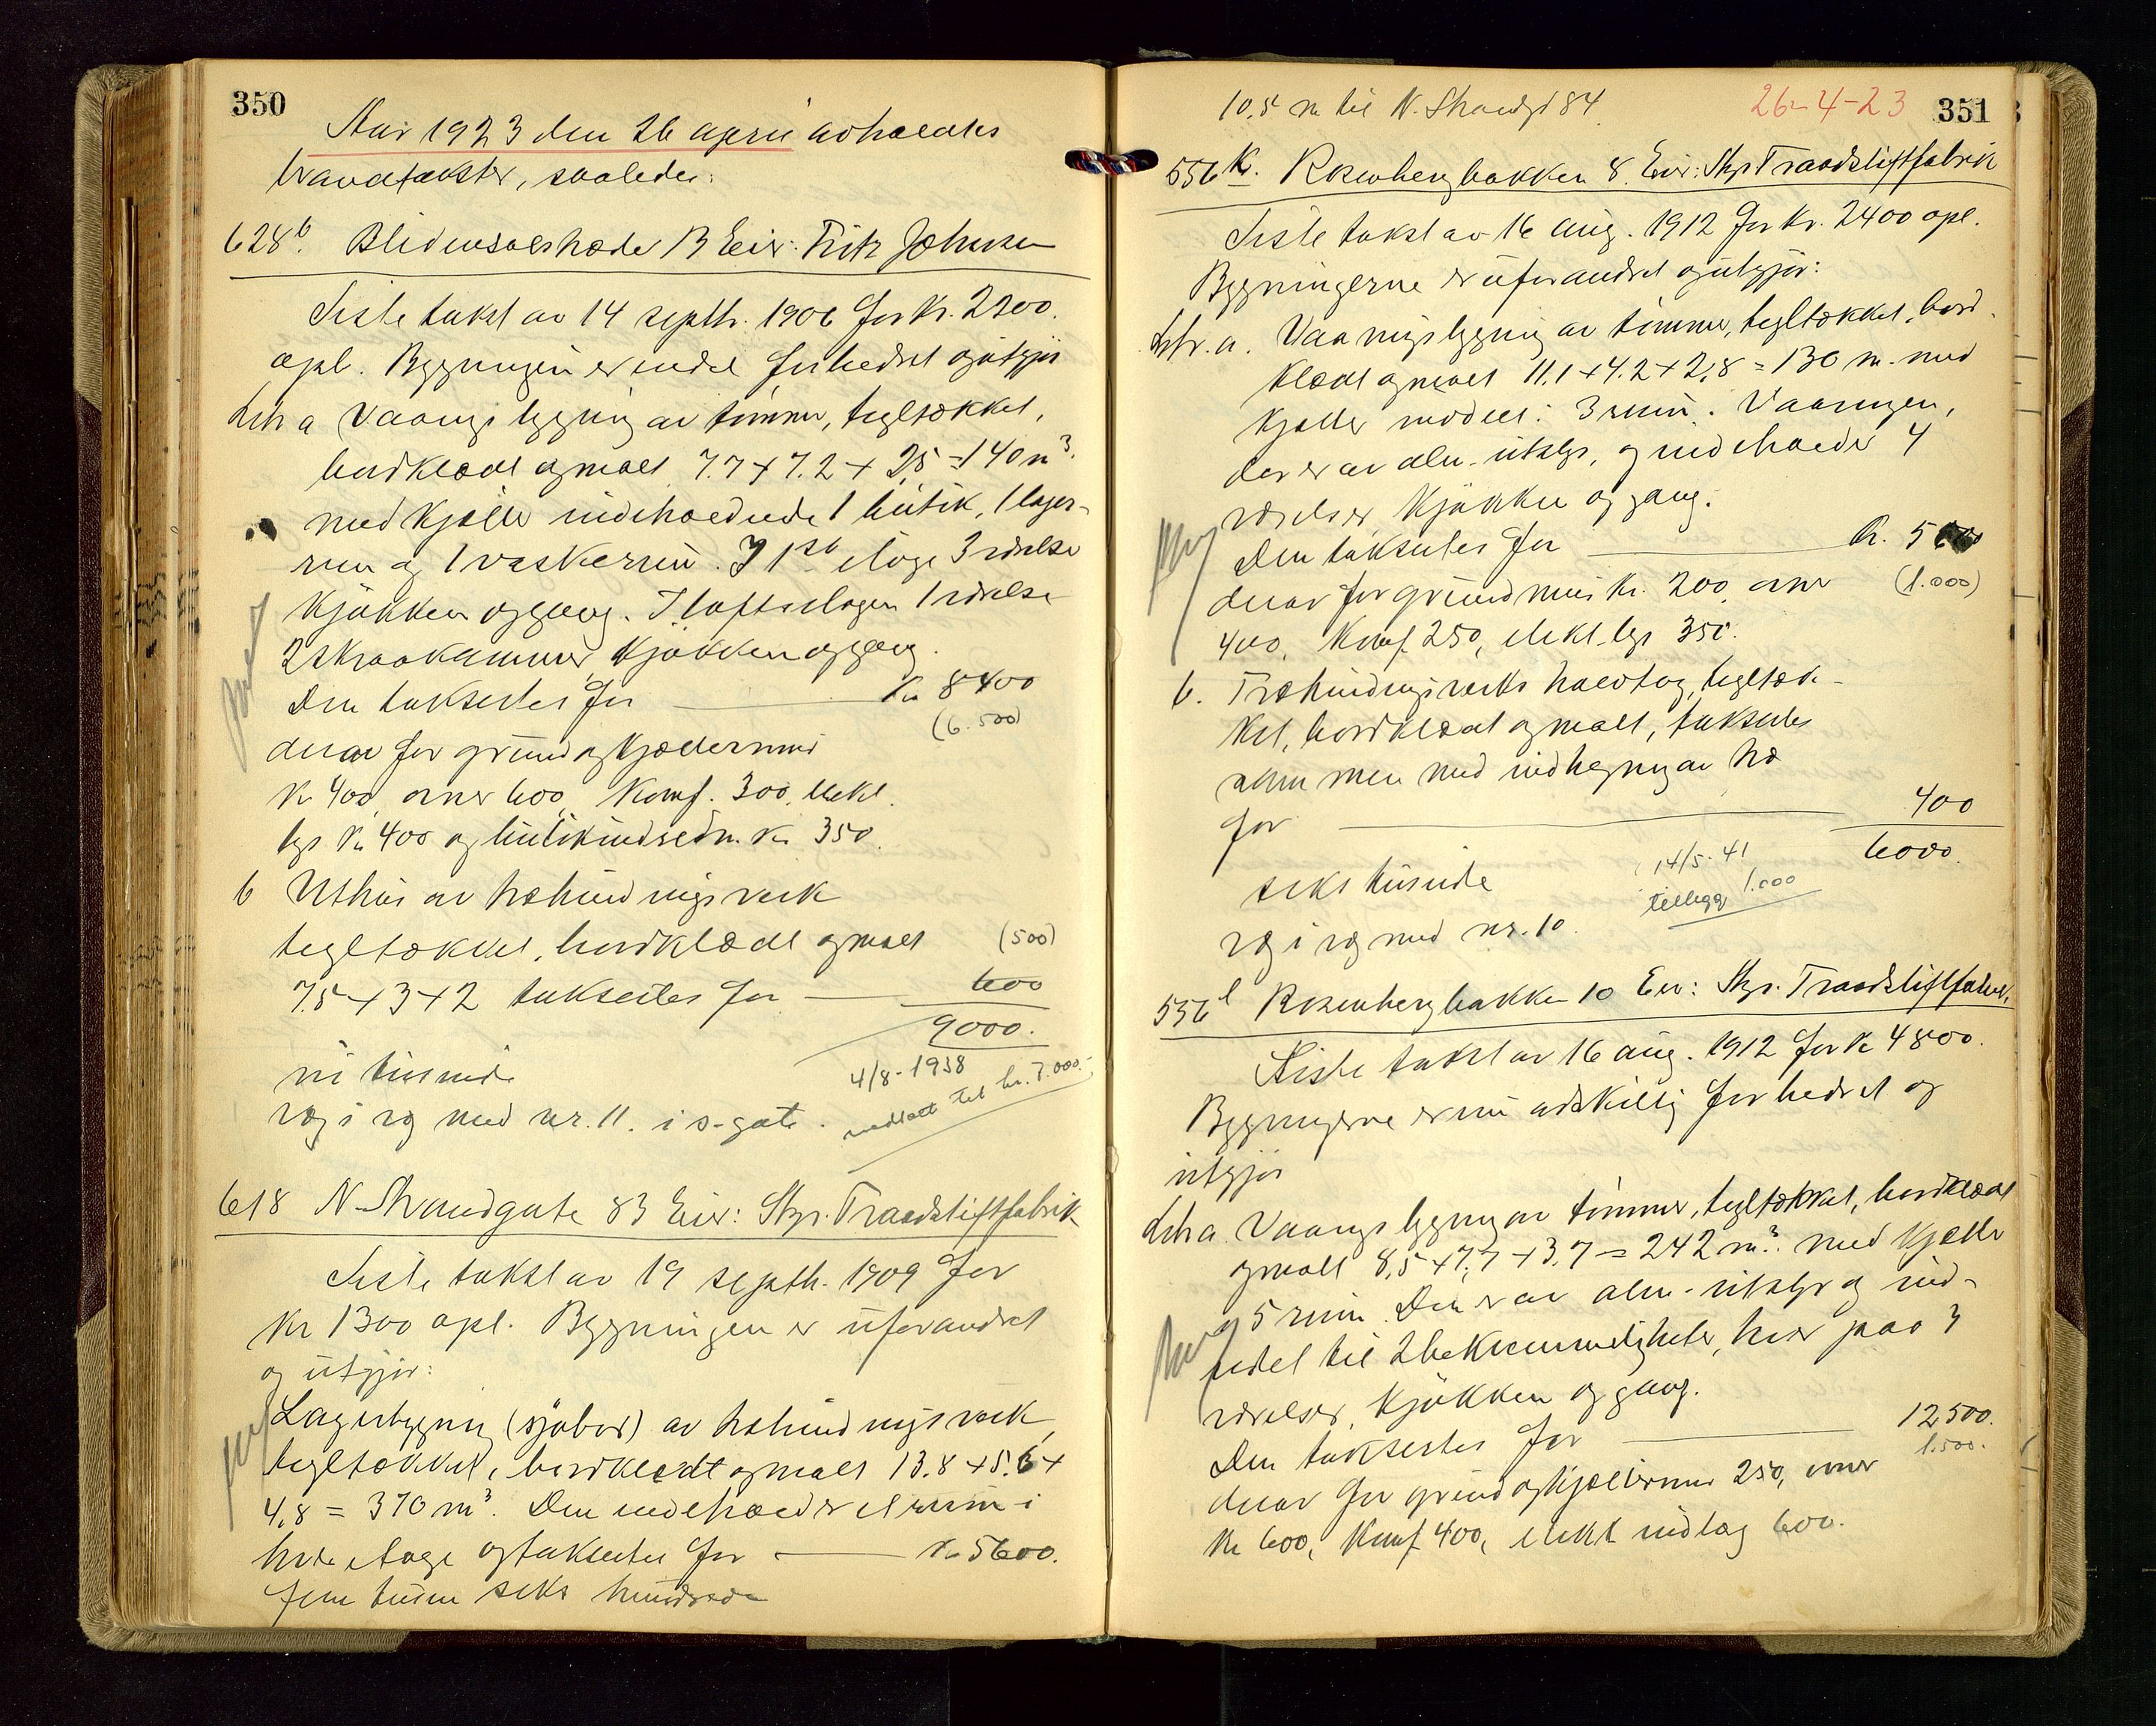 350
Aar 1923 den 26 april avholdtes
brandtakster, saaledes:
628b. Blidensolstræde 13 Eier: Fritz Johnsen
Siste takst av 14 septbr. 1906 for kr. 2200.
opl. Bygningen er endel forbedret og utgjør
Litr a Vaaningsbygning av tømmer, tegltækket,
bordklædt og malt 7.7 + 7.2 + 2,5 = 140 m3.
med kjelder indeholdende 1 butik, 1 lager-
rum og 1 vaskerum. I 1ste etage 3 værelser
kjøkken og gang. I loftsetagen 1 værelse
2 skraakammer, kjøkken og gang.
Den taksertes for kr 8400
(6.500)
derav for grund og kjældermur
kr 400, ovner 600, komf. 300, elekt.
lys kr 400 og butikindredn. kr 350.
b Uthus av træbindingsverk
tegltækket, bordklædt og malt (500)
7.5 + 3 + 2 taksertes for 600
9000.
ni tusinde 4/8-1938
væg i væg med nr. 11. i s. gate. nedsatt til kr. 7.000.-
618 N. Strandgate 83 Eier: Stgr. Traadstiftfabrik
Siste takst av 19 septbr. 1909 for
Kr 1300 opl. Bygningen er uforandret
og utgjør:
Lagerbygning (sjøbod) av træbindingsverk,
tegltækket, bordklædt og malt 13.8 + 5.6 +
4,8 = 370 m3. Den indeholder et rum i
hver etage og taksertes for kr 5600.
fem tusen seks hundrede
10,5 m til N. Strandgt 84. 26-4-23 351
556k. Rosenbergbakken 8. Eier: Stgr Traadstiftfabrik
Siste takst av 16 aug. 1912 for kr. 2400 opl.
Bygningerne er uforandret og utgjør:
Litr. a. Vaaningsbygning av tømmer, tegltækket, bord-
klædt og malt 11.1 + 4.2 + 2,8 = 130 m. med
kjelder inddelt: 3 rum. Vaaningen,
der er av alm. utstyr, og indeholder 4
værelser, kjøkken og gang.
Den taksertes for kr. 5600
derav for grundmur kr. 200, ovner (1.000)
400, komf. 250, elekt. lys 350.
b. Træbindingsverks halvtag, tegltæk-
ket, bordklædt og malt, taksertes
sammen med indhegning av træ
for 400
6000.
seks tusinde 14/5-41
tillegg 1.000
væg i væg med nr. 10.
556l Rosenbergbakken 10 Eier: Stgr. Traadstiftfabrik.
Siste takst av 16 aug. 1912 for kr 4800.
Bygningerne er nu adskillig forbedret og
utgjør
Litr a. Vaaningsbygning av tømmer, tegltækket, bordklædt
og malt 8,5 + 7,7 + 3,7 = 242 m3. med kjelder
og 5 rum. Den er av alm. utstyr og ind-
redet til 2 bekvemmeligheter, hver paa 3
værelser, kjøkken og gang.
Den taksertes for 12500.
1.500.
derav for grund og kjældermur 250, ovner
kr 600, komf. 400, elekt. indlag 600.